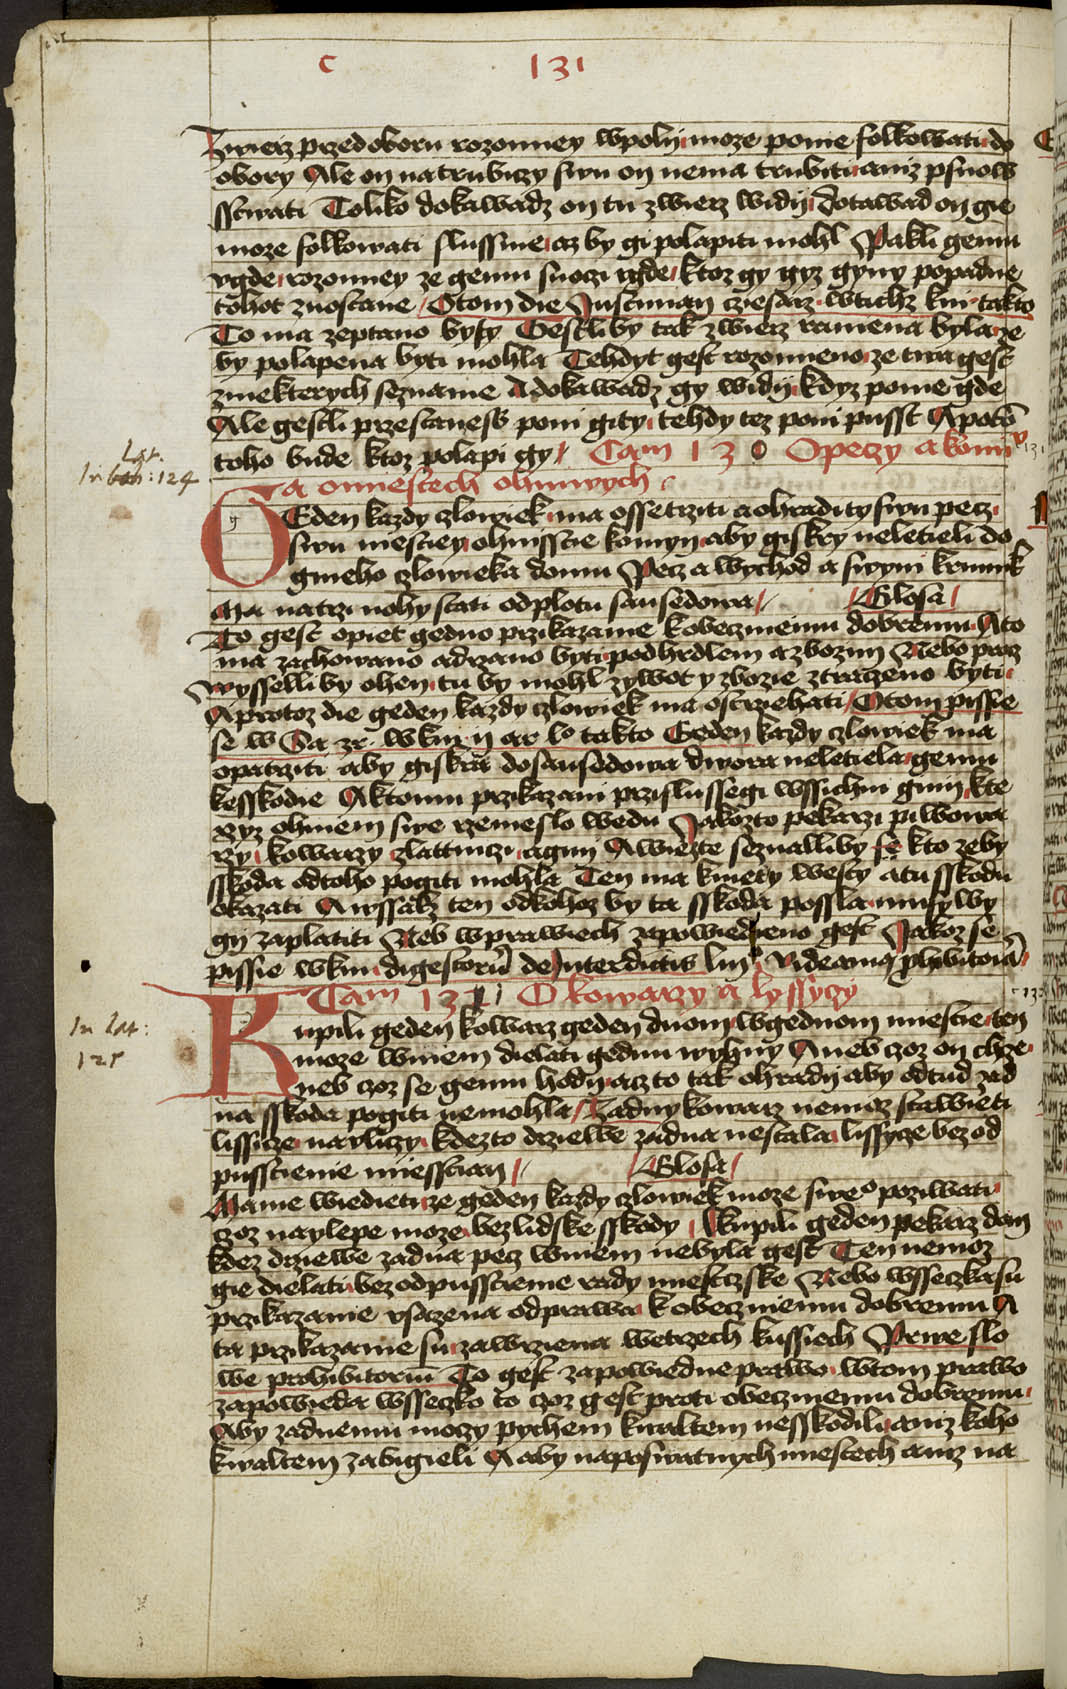 c 131
zwierz przed oboru rozomiey wpoly moze ponie folkowati do
obory Ale on natrubiczy swu on nema trubiti aniz psuow
sscwati Toliko dokawadz on tu zwierz widij dotawad on gie
moze folkowati slussine az by gi polapiti mohl Pakli gemu
vgde rozomiey ze gemu snoczi vgde ktoz gy gyz gyny popadne
tohot znostane Otom die Justinian cziesarz wtichz knihach takto
To ma zeptano byty Gestliby tak zwierz ranena byla ze
by polapena byti mohla Tehdyt gest rozomieno ze twa gest
zniekterych seznanie A dokawadz gy widij kdyz ponie gde
Ale gestli przestaness poni gity tehdy tez poni pusst A potom
toho bude ktoz polapi gy Cam 130 O peczy a komin
Lat. In boh: 124
a o miestech ohniwych
Geden kazdy czlowiek ma ossetrziti a ohradity swu pecz
swu miestiey ohnisscie komyn aby giskry neletieli do
gineho czlowieka domu Pecz a wychod a swyni krmnik
Ma na trzi nohy stati od plotu sausedowa Glosa
To gest opiet gedno przikazanie k obecznemu dobremu A to
ma zachowano a drzano byti pod hrdlem a zbozim Nebo pracz
wyssel li by ohen tu by mohl zywot y zbozie ztraczeno byti
A protoz die geden kazdy czlowiek ma ostrziehati O tom pissie
se w Sa zr w kni ii ar lo takto Geden kazdy czlowiek ma
opatrziti aby giskra do sausedowa dwora neletiela gemu
kesskodie A k tomu przikazani przislussegi wssichni gini kte
rzyz ohniem swe rzemeslo wedu Jakozto pekarzi piwowa
rzy kowarzy zlattniczi a gini A wiezte seznalliby se kto zeby
sskoda od toho pogiti mohla Ten ma kmety westy a tu sskodu
okazati A wssak ten od kohoz by ta sskoda possla musy wy
gy zaplatiti Neb w prawiech zapowiedieno gest Jakoz se
pissie w kni digestorum de Interdictis Videamus prohibitoria
Cam 131 O kowarzy a lyssyczy
In Lat: 125
Kupili geden kowarz geden duom w gednom miestie ten
moze w niem dielati gednu wyhny A neb czoz on chcze
neb czoz se gemu hody acz to tak ohrady aby odtud zad
na sskoda pogiti nemohla Zadny kowarz nemoz stawieti
lissicze na yliczy kdezto drzielwe zadna nestala lissycze bez od
pusstienie miesstian Glosa
Mame wiedieti ze geden kazdy czlowiek moze sweo poziwati
czoz naylepe moze bez lidske sskody A kupili geden pekarz dom
kdez drziewe zadna pecz w niem nebyla gest Ten nemoz
gie dielati bez odpusstienie rady miestczske Nebo wsseczka su
przikazanie vsazena od prawa k obecznemu dobremu A
ta przikazanie su zawrziena we trzech kussiech Prwe slo
we prohibitorium To gest zapowiedne prawo w tom prawo
zapowieda wsseczko to czoz gest proti obecznemu dobremu
Aby zadnemu moczy pychem kwaltem nesskodili aniz koho
kwaltem zabigieli A aby na poswatnych miestech aniz na